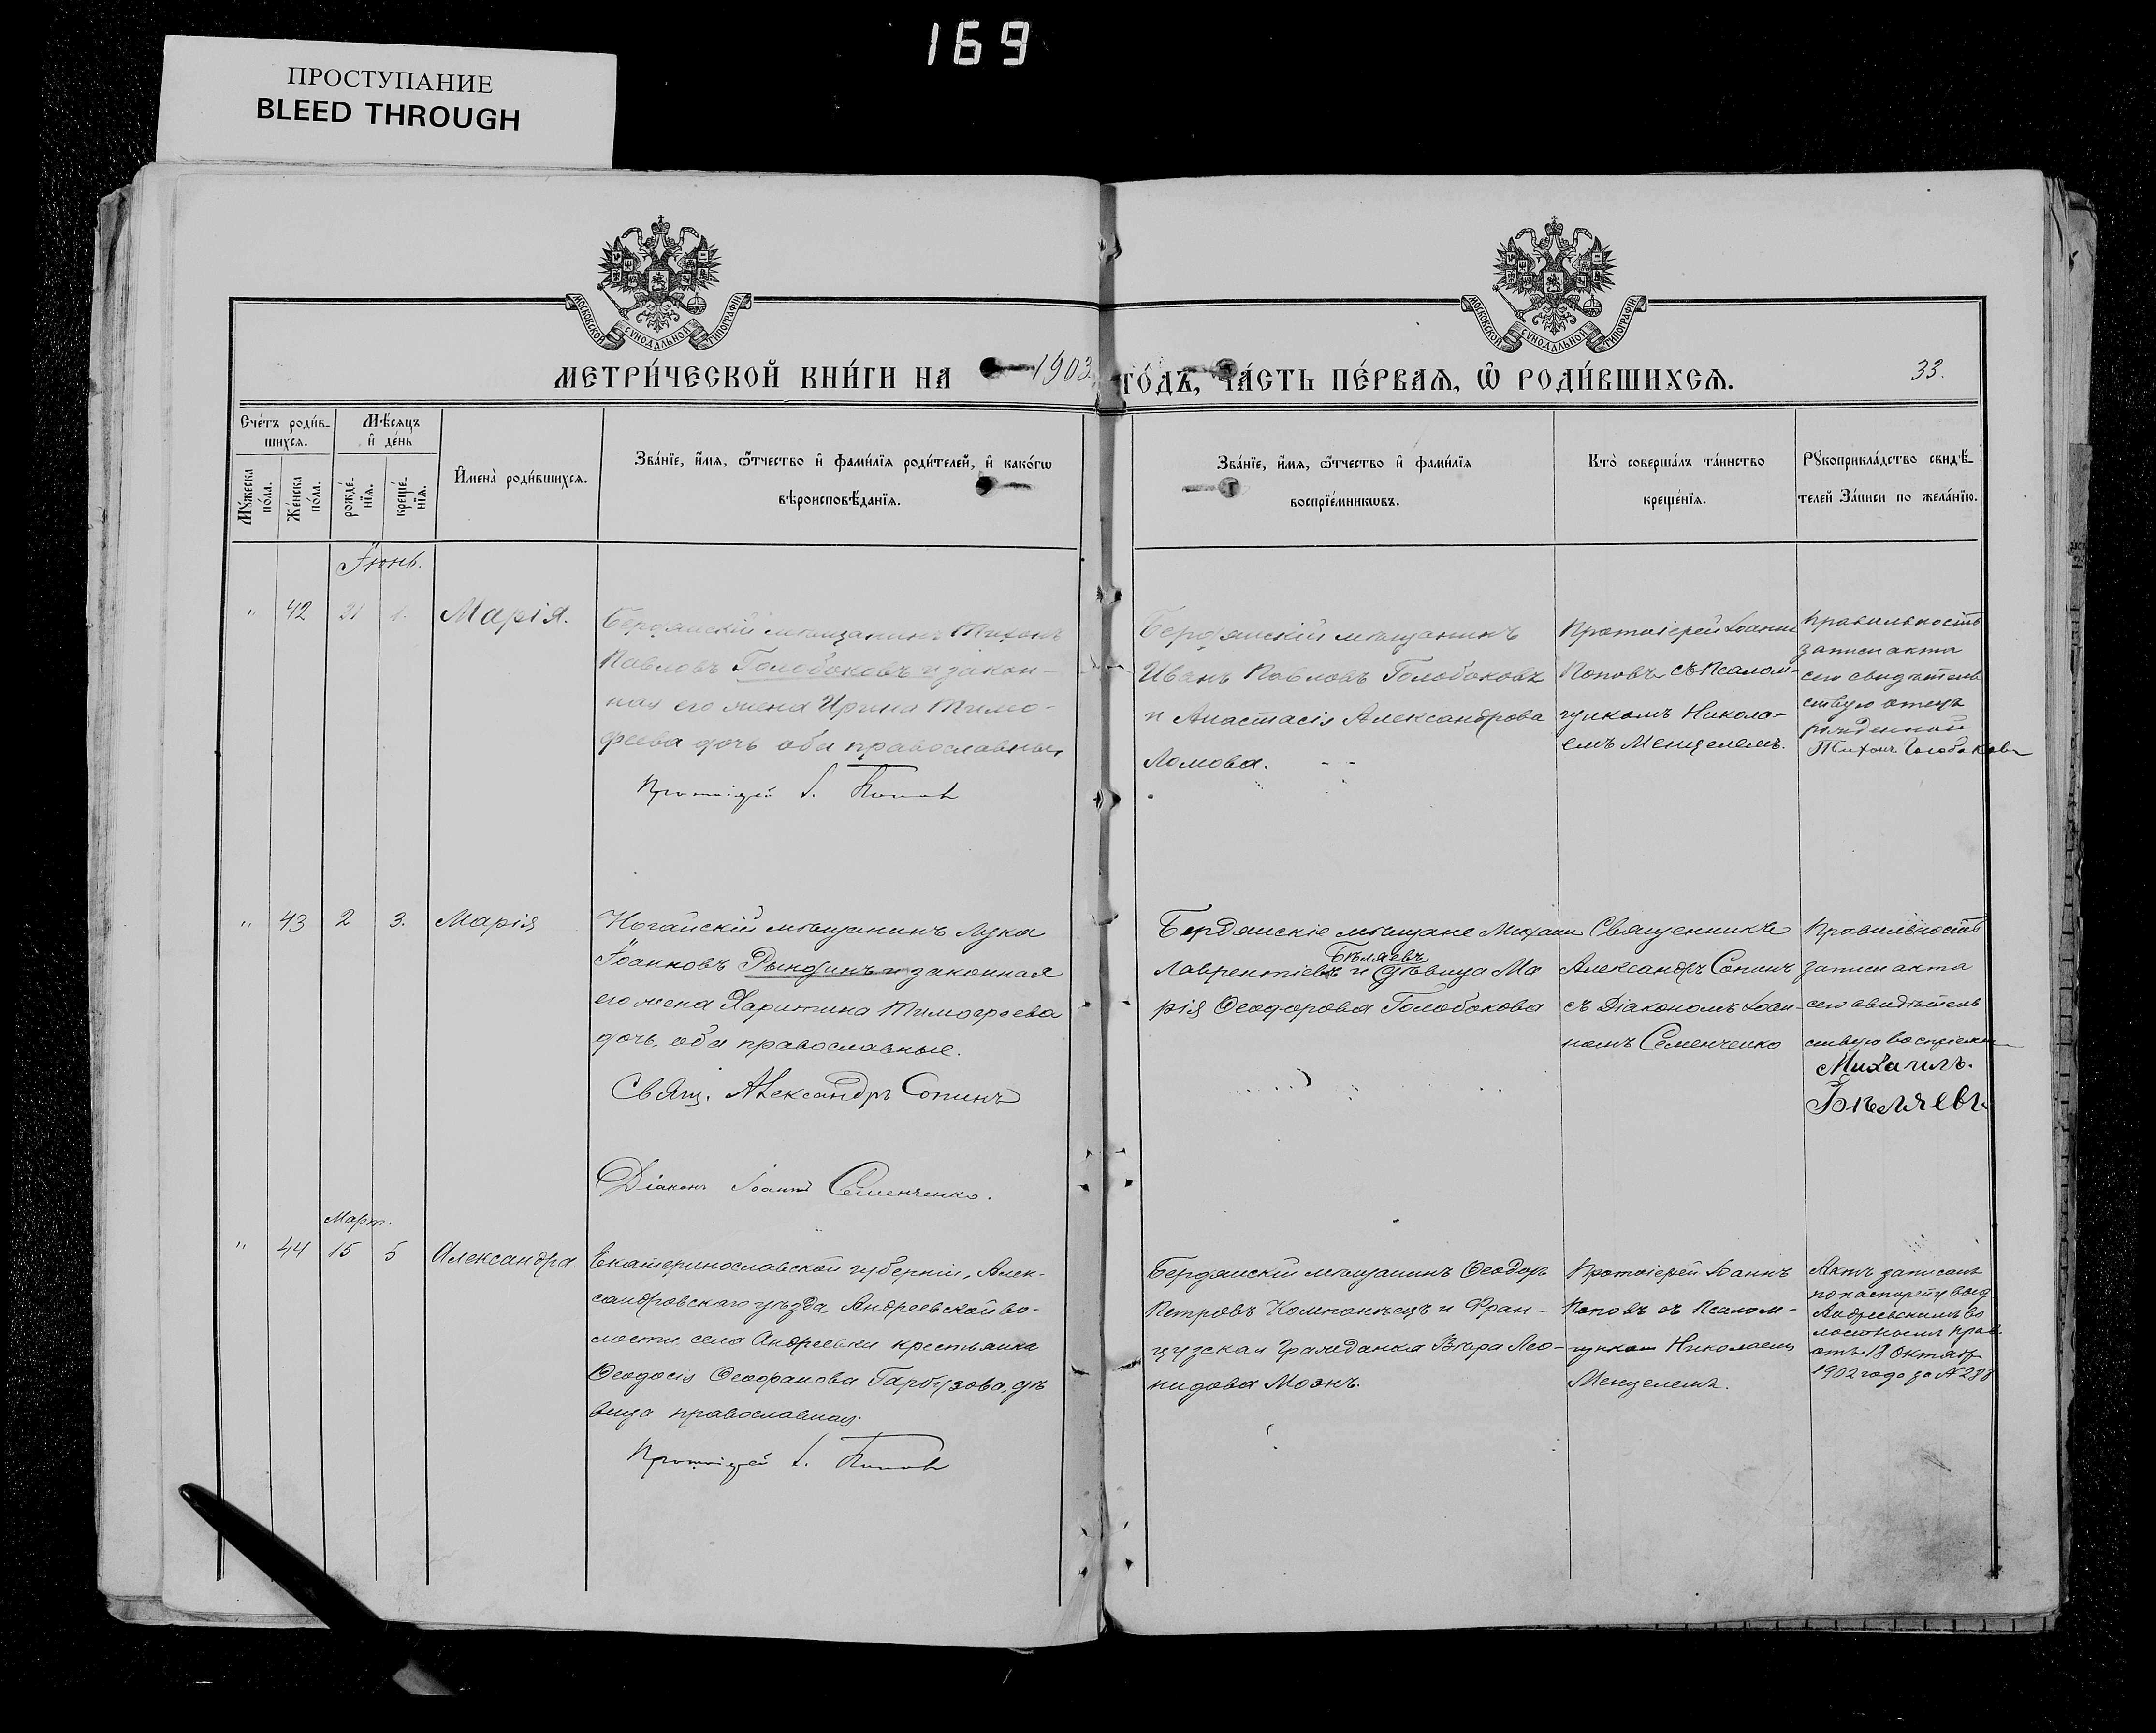 169
ПРОСТУПАНИЕ
BLEED THROUGH
МОСКОВСКОЙ СѴНОДАЛЬНОЙ ТИПОГРАФІИ
МОСКОВСКОЙ СѴНОДАЛЬНОЙ ТИПОГРАФІИ
МЕТРИ́ЧЕСКОЙ КНИ́ГИ НА 1903 ГО́ДЪ, ЧА́СТЬ ПЕ́РВАѦ, Ѽ РОДИ́ВШИХСѦ.
33.
Сче́тъ роди́в-
шихсѧ.
Мѣ́сѧцъ
и҆ де́нь
Мꙋ́жеска
по́ла.
Же́нска
по́ла.
рожде́-
нїѧ.
креще́-
нїѧ.
И҆мена̀ роди́вшихсѧ.
Зва́нїе, и҆́мѧ, ѻ҆́тчество и҆ фами́лїѧ роди́телей, и҆ како́гѡ
вѣроисповѣ́данїѧ.
Зва́нїе, и҆́мѧ, ѻ҆́тчество и҆ фами́лїѧ
воспрїе́мникѡвъ.
Кто̀ соверша́лъ та́инство
креще́нїѧ.
Рꙋкоприкла́дство свидѣ́-
телей За́писи по жела́нїю.
Іюнь.
" 42 31 1. Марія.
Бердянскій мѣщанинъ Тихонъ
Павловъ Голобоковъ и закон-
ная его жена Ирина Тимо-
феева дочь оба православные
Протоіерей І. Попов
Бердянскій мѣщанинъ
Иванъ Павловъ Голобоковъ
и Анастасія Александрова
Ломова.
Протоіерей Іоаннъ
Поповъ съ Псалом-
щикомъ Никола-
емъ Менцелемъ.
Правильность
записи акта
сего свидѣтель
ствую отецъ
рожденной
Тихон Голобоков
" 43 2 3. Марія
Ногайскій мѣщанинъ Лука
Іоанновъ Рындинъ и законная
его жена Харитина Тимофеева
дочь, оба православные.
Свящ. Александръ Сопинъ
Діаконъ Іоаннъ Семенченко.
Бердянскіе мѣщане Михаил
Бѣляевъ
Лаврентіевъ и дѣвица Ма
рія Ѳеодорова Голобокова
Священникъ
Александръ Сопинъ
съ Діакономъ Іоан-
номъ Семенченко
Правильность
записи акта
сего свидѣтель
ствую воспріемн
Михаилъ.
Бѣляевъ.
Март.
" 44 15 5 Александра.
Екатеринославской губерніи, Алек-
сандровскаго уѣзда Андреевской во-
лости села Андреевки крестьянка
Ѳеодосія Ѳеофанова Гарбузова, дѣ
вица православная.
Протоіерей І. Попов
Бердянскій мѣщанинъ Ѳеодоръ
Петровъ Компанѣецъ и Фран-
цузская Гражданка Вѣра Лео-
нидова Моэнъ.
Протоіерей Іоаннъ
Поповъ съ Псалом-
щиком Николаемъ
Менцелемъ.
Актъ записанъ
по паспорту выд
Андреевскимъ во
лостнымъ прав.
отъ 18 Октяб
1902 года за № 288